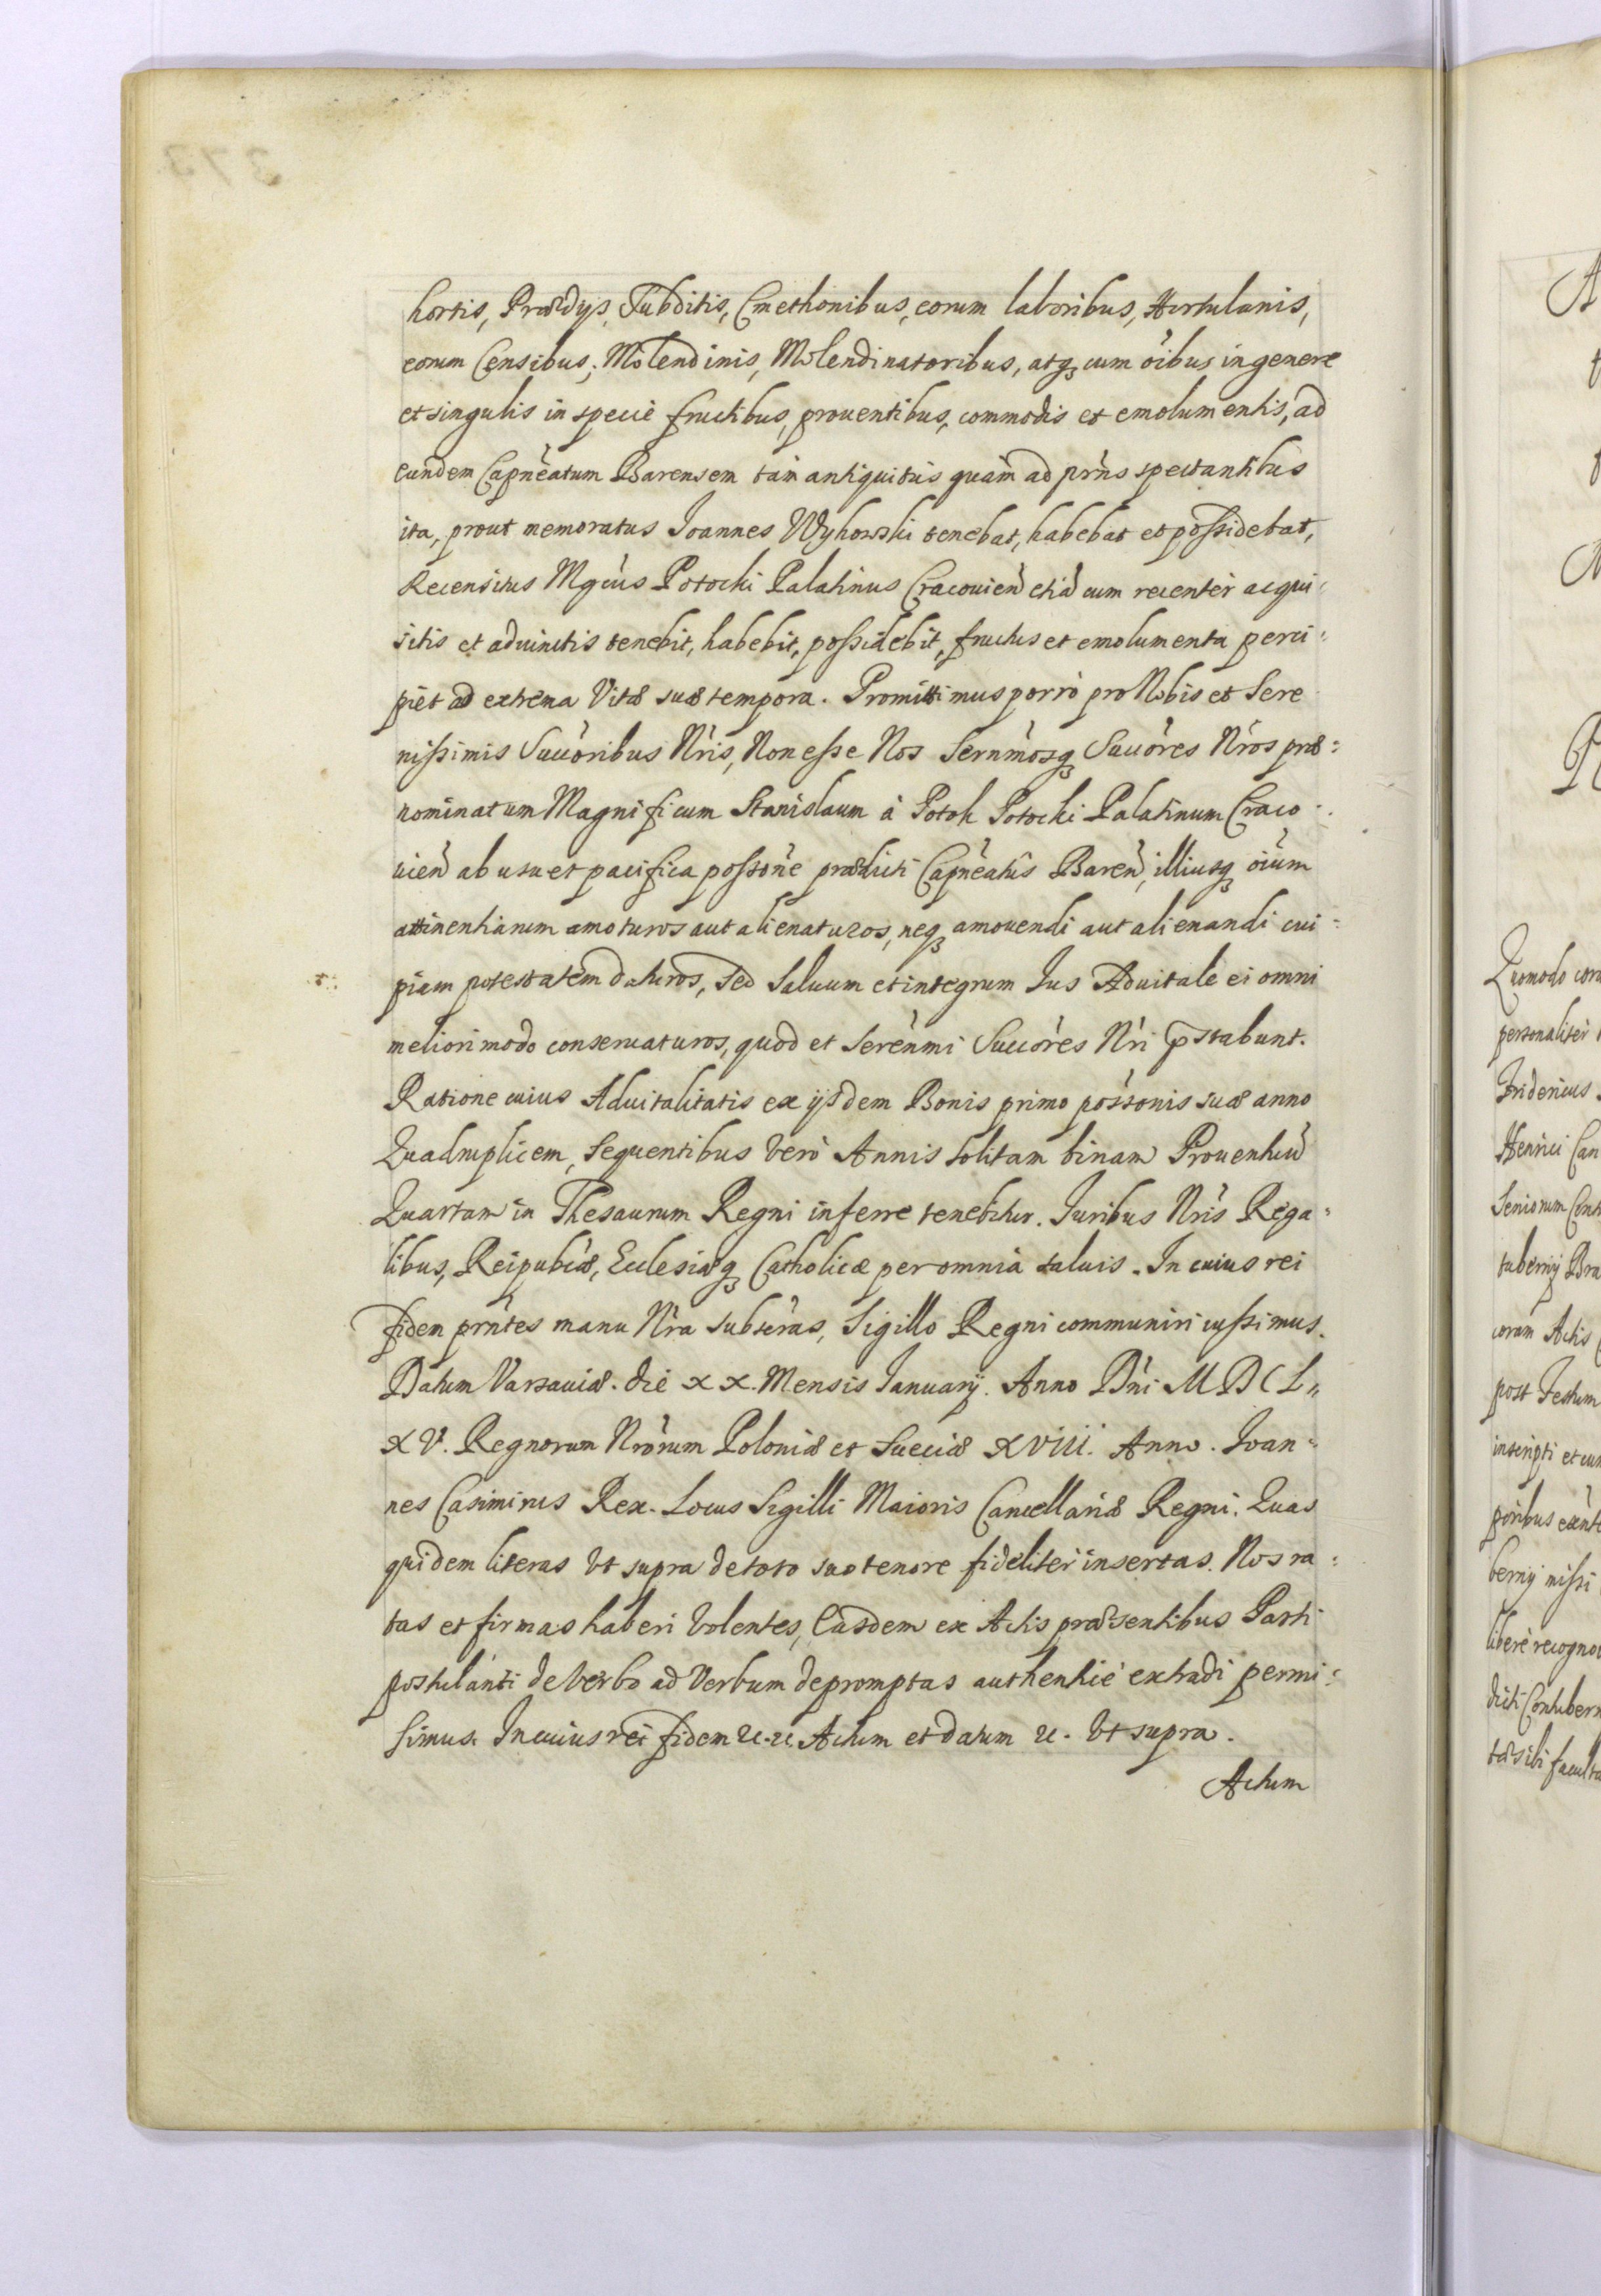 hortis, Prædijs, Subditis, Cmethonibus, eorum laboribus, Hortulanis,
eorum Censibus; Molendinis, Molendinatoribus, atq₃ cum oi̇bus in genere
et singulis in specie fructibus, prouentibus, commodis et emolumentis, ad
eundem Capnèatum Barensem tàm antiquitùs quàm ad prǹs spectantibus
ita, prout memoratus Joannes Wyhowski tenebat, habebat et possidebat,
Recensitus Mgcùs Potocki Palatinus Cracouień etiã cum recentèr acqui=
sitis et aduinctis tenebit, habebit, possidebit, fructus et emolumenta perci=
piet ad extrema Vitæ suæ tempora. Promittimus porrò pro Nobis et Sere
nissimis Succòribus Nr̀is, Non esse Nos Sernm̀osq₃ Succòres Nr̀os præ=
nominatum Magnificum Stanislaum à Potok Potocki Palatinum Craco=
uień ab usu et pacifica possòne prædicti Capnèatûs Bareń, illiusq₃ oìum
attinentiarum amoturos aut alienaturos, neq₃ amouendi aut alienandi cui=
piam potestatem daturos, Sed Saluum et integrum Jus Aduitale ei omni
meliori modo conseruaturos, quod et Serènmi Succòres Nr̀i p̃stabunt.
Ratione cuius Aduitalitatis ex ijsdem Bonis primo possònis suæ anno
Quadruplicem, Sequentibus verò Annis Solitam binam Prouentuũ
Quartam in Thesaurum Regni inferre tenebitur. Juribus Nr̀is Rega=
libus, Reipublcæ, Ecclesiæq₃ Catholicæ per omnia saluis. In cuius rei
fidem prǹtes manu Nr̀a subscràs, Sigillo Regni communiri iussimus.
Datum Varsauiæ. die XX. Mensis Januarij. Anno Dǹi MDCL=
XV. Regnorum Nròrum Poloniæ et Sueciæ XVIII. Anno. Joan=
nes Casimirus Rex. Locus Sigilli Maioris Cancellariæ Regni. Quas
quidem literas Vt supra de toto suo tenore fidelitèr insertas. Nos ra=
tas et firmas haberi Volentes, Easdem ex Actis præsentibus Parti
postulanti de Verbo ad Verbum depromptas authenticè extradi permi=
simus. In cuius rei fidem &c. &c. Actum et datum &c. Vt supra.
Actum